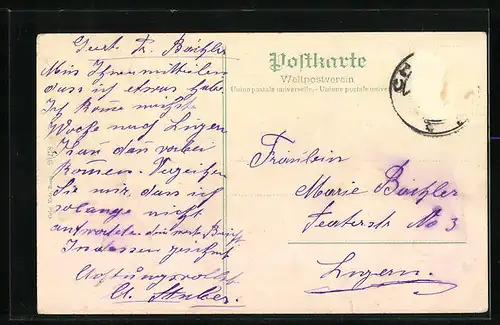 Geert. Fr. Bächler
Mein Ihnen mitteilen
dass ich etwas habe
Ich Kome nächste
Woche nach Luzern
Kan dan vorbei
Komen. Verzeihen
Sie mir, dass ich
solange nicht
antwortete.
Indessen zeichnet
Achtungsvollst
A. Stuber.
Postkarte
Weltpostverein
Union postale universelle. - Unione postale universale
Fräulein
Marie Bächler
Teaterstr No 3
Luzern.